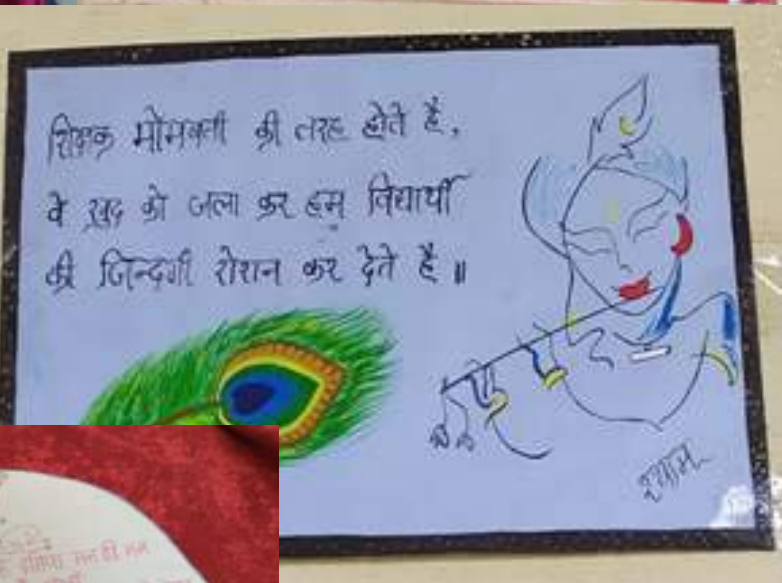 शिक्षक मोमबत्ती की तरह होते है,
वे खुद को जला कर हम विद्यार्थी
की जिन्दगी रोशन कर देते है॥
श्याम
मन ही मन